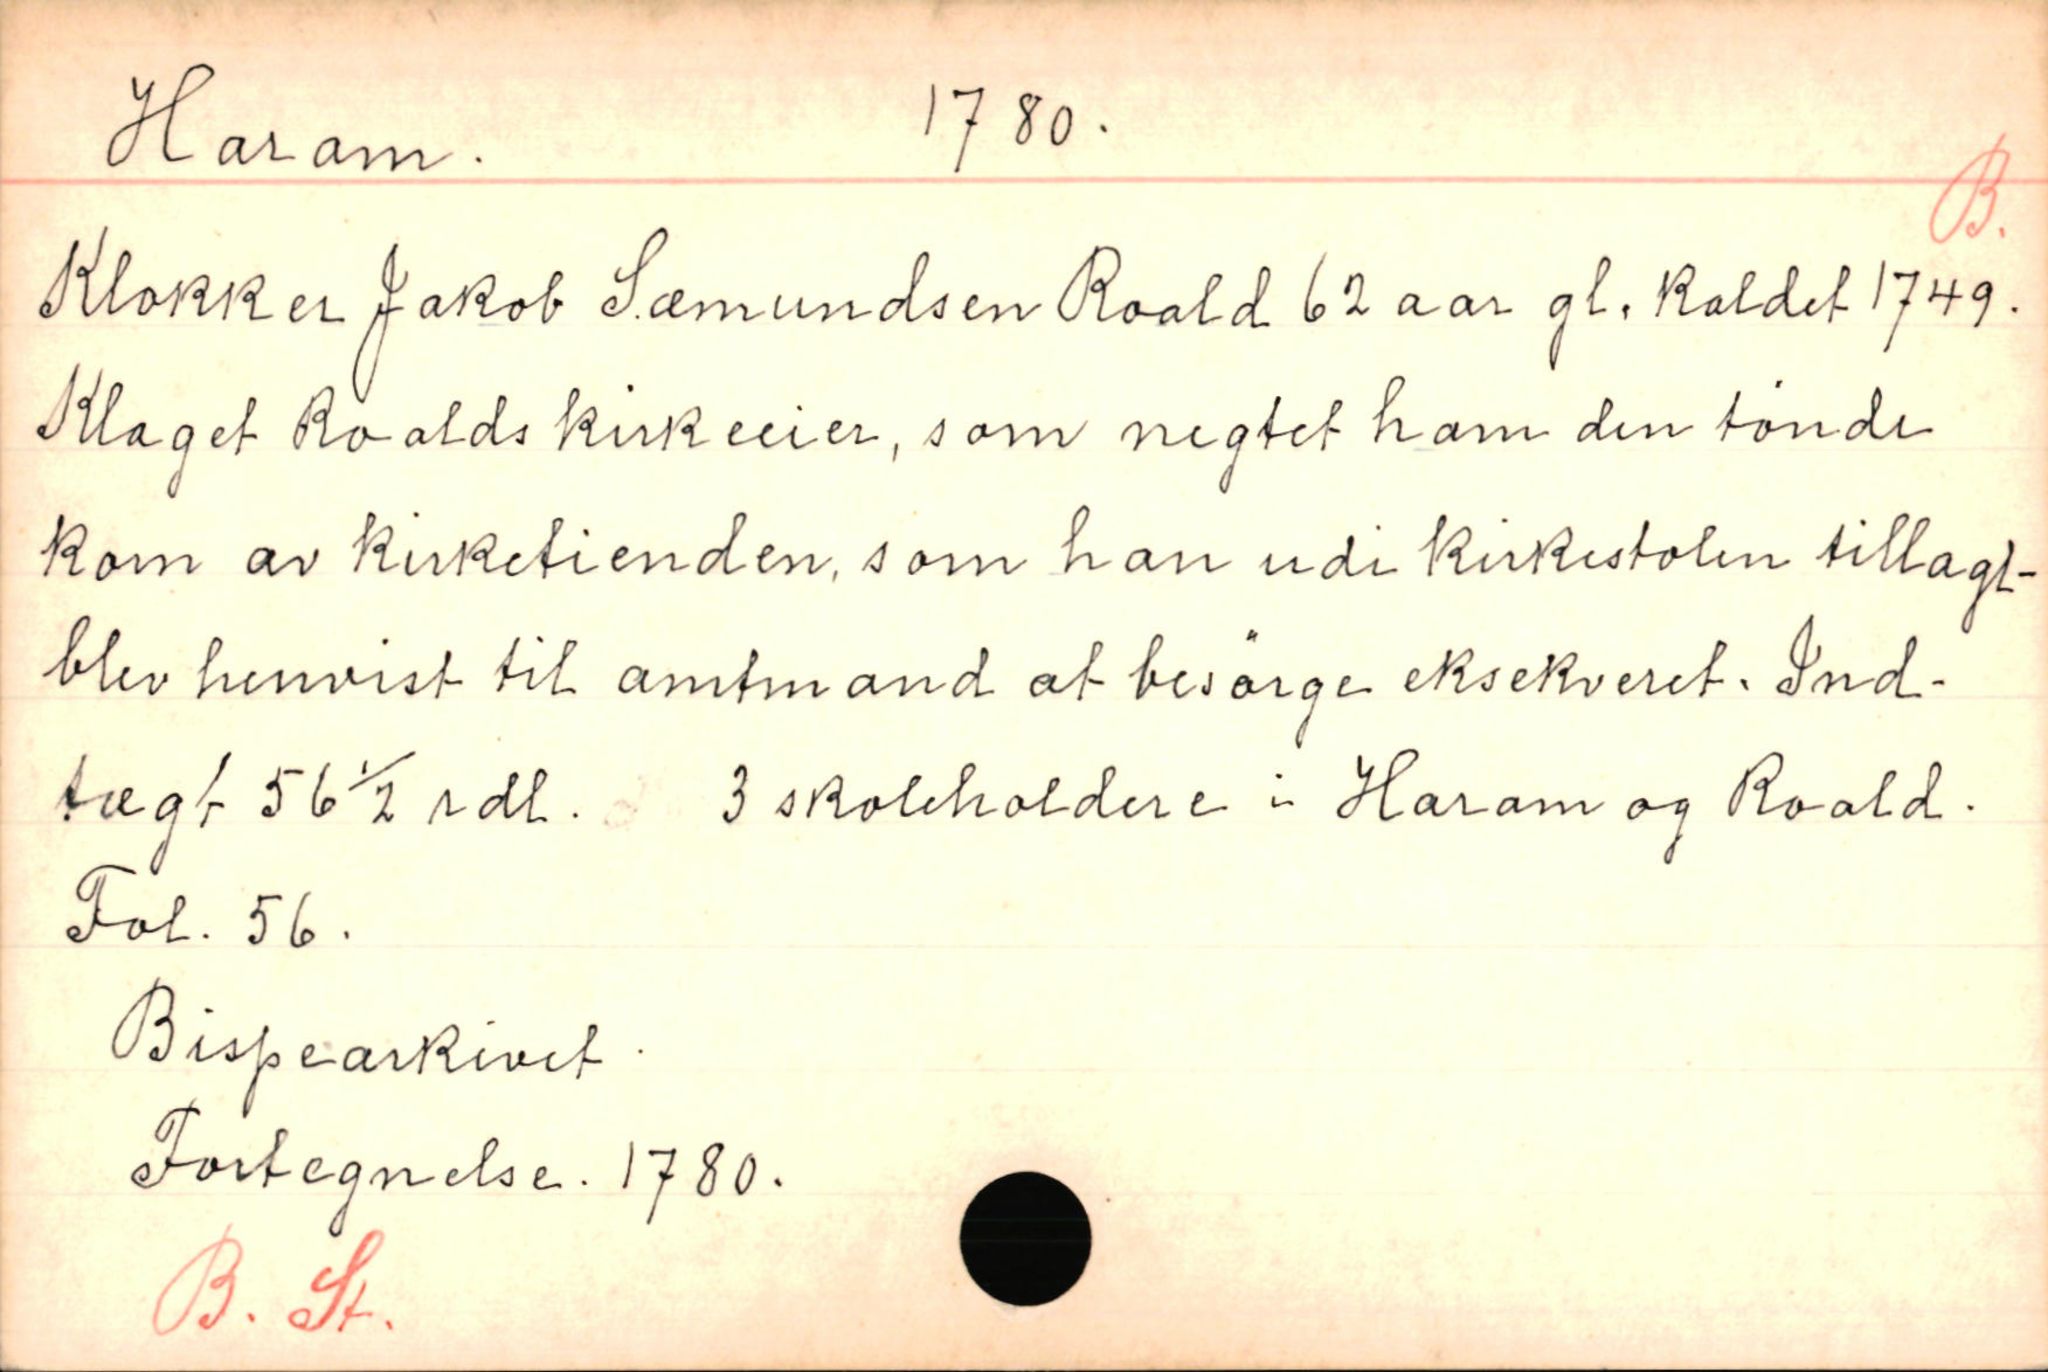 Haram. 1780.
B.
Klokker Jakob Sæmundsen Roald 62 aar gl. kaldet 1749.
Klaget Roalds kirkeeier, som negtet ham den tönde
korn av kirketienden, som han udi kirkestolen tillagt-
blev henvist til amtmand at besörge eksekveret. Ind-
tægt 56 1/2 rdl. 3 skoleholdere i Haram og Roald.
Fol. 56.
Bispearkivet.
Fortegnelse. 1780.
B. St.